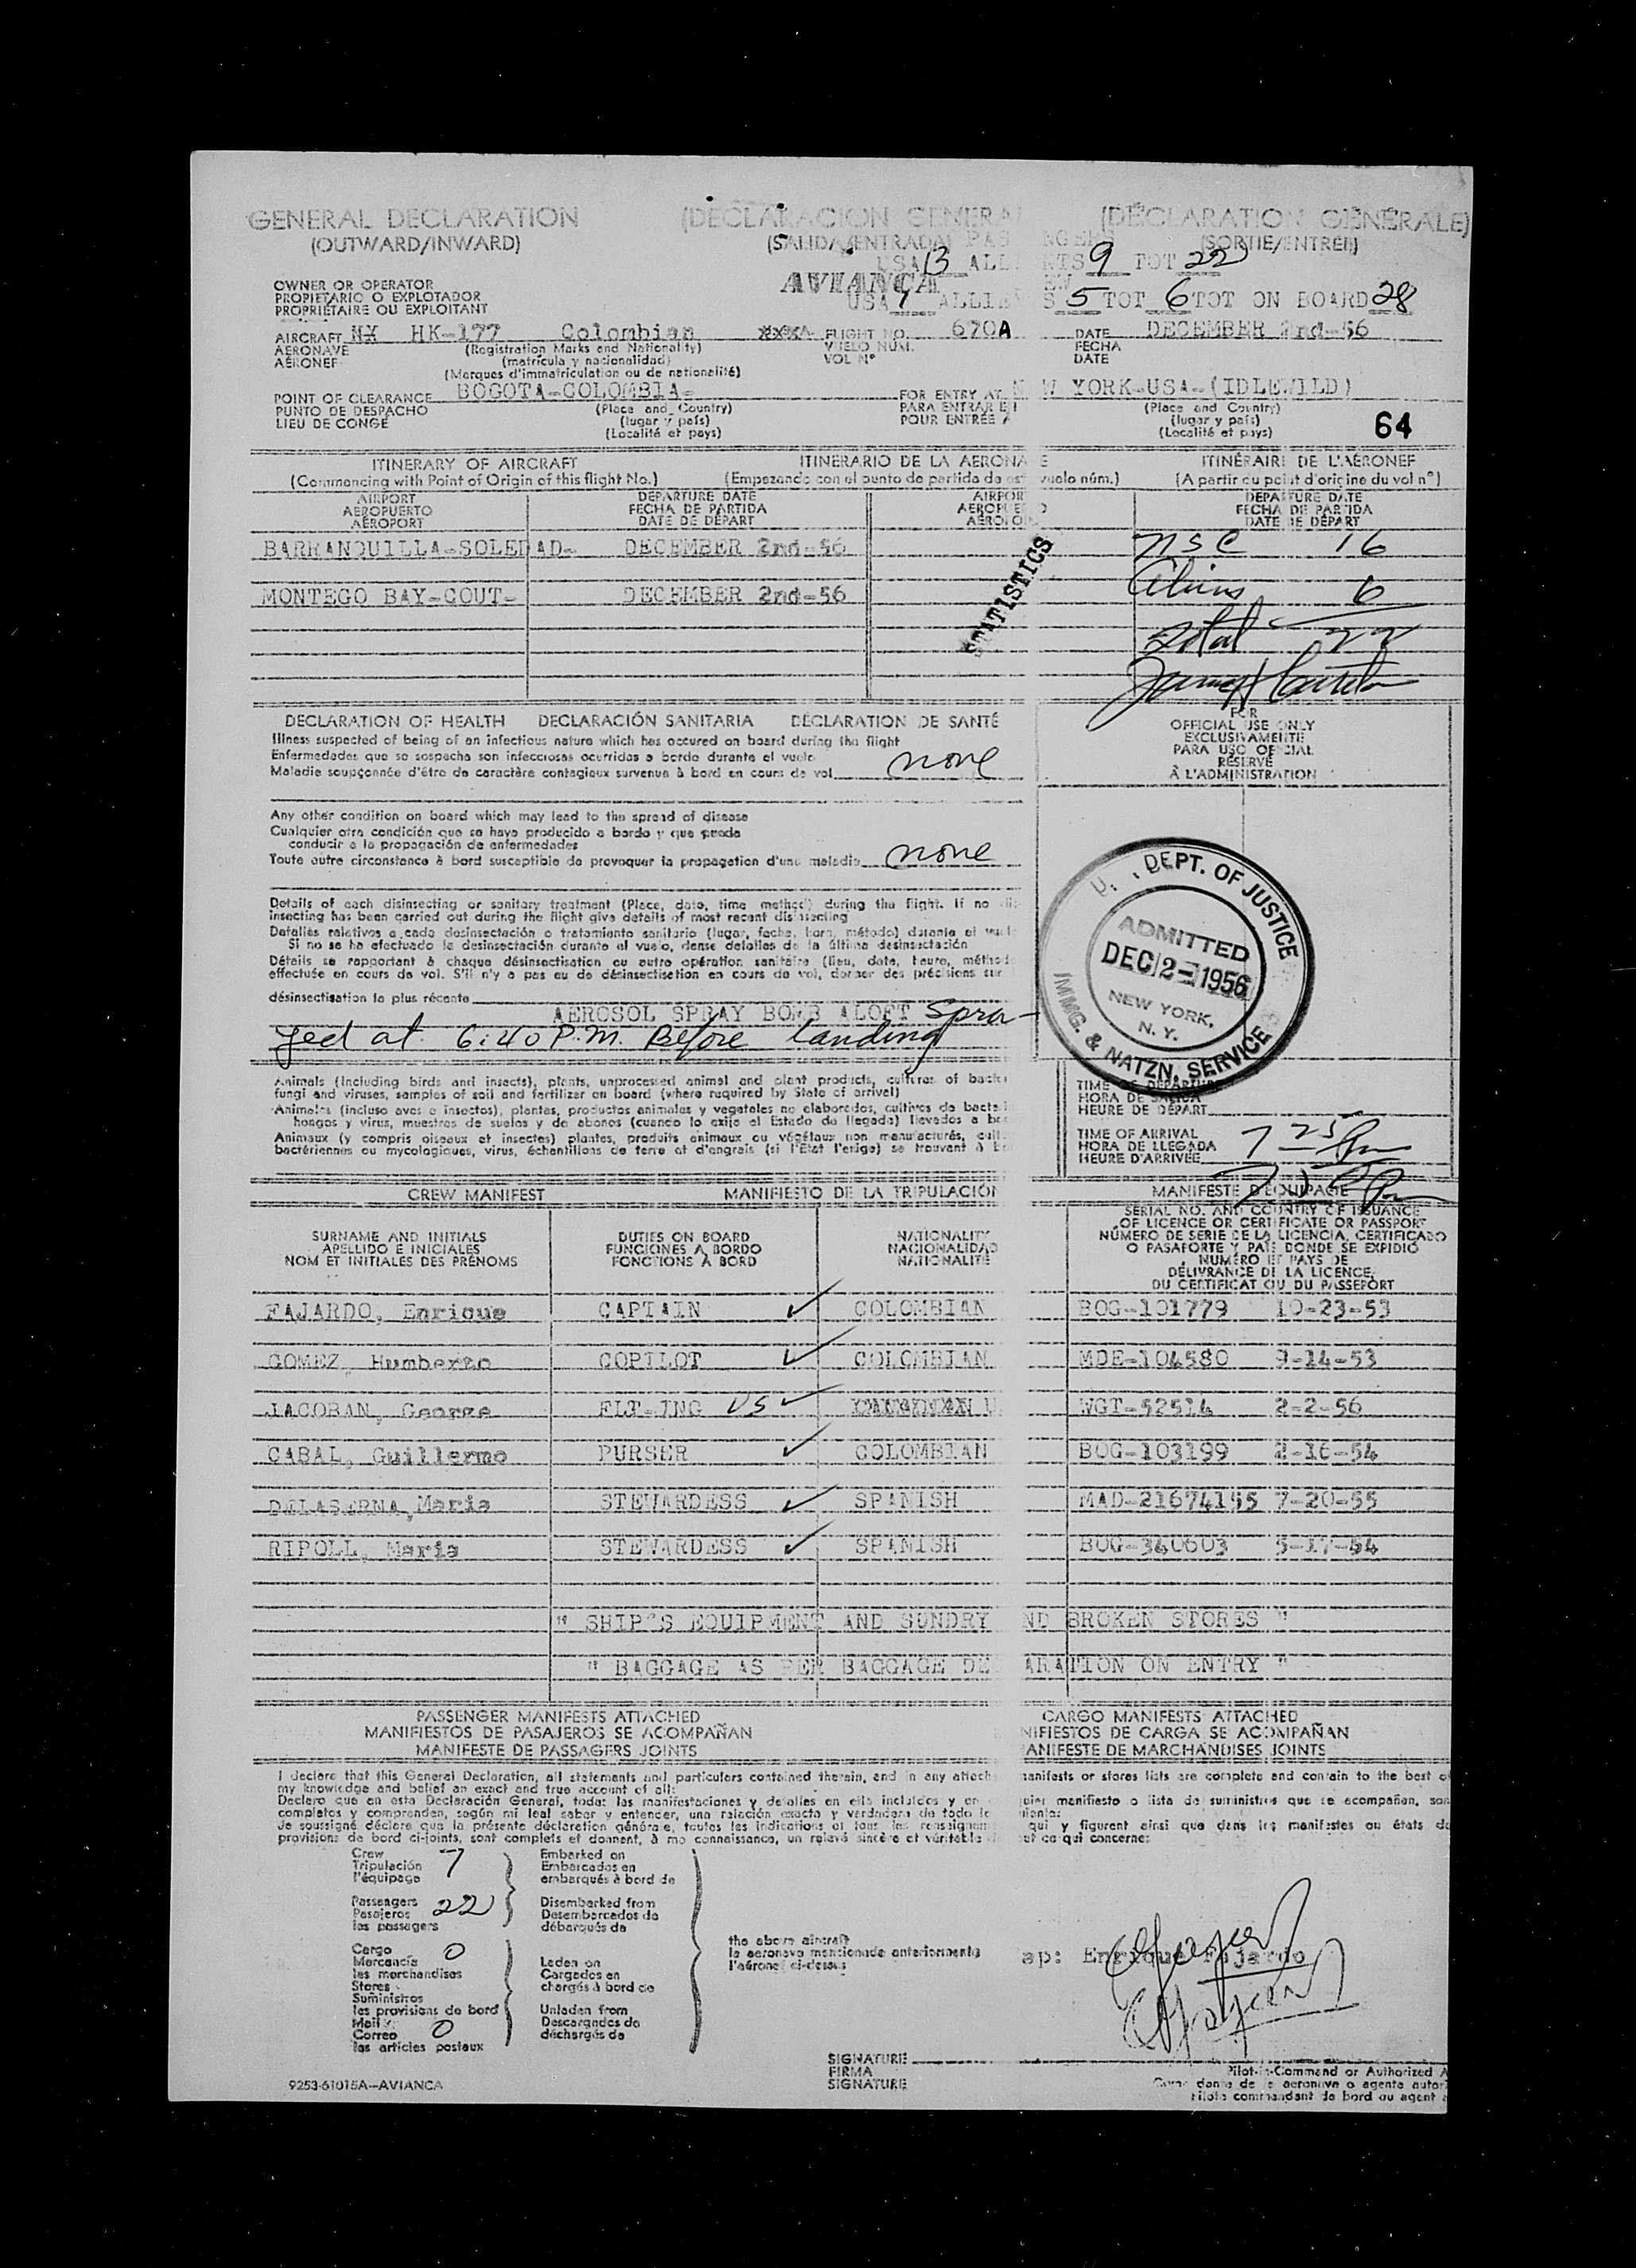 GENERAL DECLARATION (DECLARACION GENERAL (DÉCLARATION GÉNÉRALE)
(OUTWARD/INWARD) (SALIDA/ENTRADA) (SORTIE/ENTRÉE)
USA 13 9 TOT 22
AVIANCA
OWNER OR OPERATOR
PROPIETARIO O EXPLOTADOR
PROPRIÉTAIRE OU EXPLOITANT
USA 1 5 TOT 6 TOT ON BOARD 28
AIRCRAFT HK-177 Colombian FLIGHT NO. 670A DATE DECEMBER 2nd-56
AERONAVE (Registration Marks and Nationality) VUELO NÚM. FECHA
AÉRONEF (matrícula y nacionalidad) VOL Nº DATE
(Marques d'immatriculation ou de nationalité)
POINT OF CLEARANCE BOGOTA-COLOMBIA- FOR ENTRY AT N W YORK-USA-(IDLEWILD)
PUNTO DE DESPACHO (Place and Country) PARA ENTRAR E (Place and Country)
LIEU DE CONGÉ (lugar y país) POUR ENTRÉE A (lugar y país)
(Localité et pays) (Localité et pays) 64
ITINERARY OF AIRCRAFT ITINERARIO DE LA AERONA E ITINÉRAIRE DE L'AÉRONEF
(Commencing with Point of Origin of this flight No.) (Empezando con el punto de partida de est vuelo núm.) (A partir du point d'origine du vol nº)
AIRPORT DEPARTURE DATE AIRPOR DEPARTURE DATE
AEROPUERTO FECHA DE PARTIDA AEROPUE O FECHA DE PARTIDA
AÉROPORT DATE DE DÉPART AÉRO DATE DE DÉPART
BARRANQUILLA-SOLEDAD- DECEMBER 2nd-56 USC 16
STATISTICS
MONTEGO BAY-GOUT- DECEMBER 2nd-56 Aliens 6
Total 22
DECLARATION OF HEALTH DECLARACIÓN SANITARIA DÉCLARATION DE SANTÉ
Illness suspected of being of an infectious nature which has occured on board during the flight
Enfermedades que se sospecha son infecciosas ocurridas a bordo durante el vuelo
Maladie soupçonnée d'être de caractère contagieux survenue à bord en cours de vol none
FOR
OFFICIAL USE ONLY
EXCLUSIVAMENTE
PARA USO OFICIAL
RÉSERVÉ
À L'ADMINISTRATION
Any other condition on board which may lead to the spread of disease
Cualquier otra condición que se haya producido a bordo y que pueda
conducir a la propagación de enfermedades
Toute autre circonstance à bord susceptible de provoquer la propagation d'une maladie none
Details of each disinsecting or sanitary treatment (Place, date, time method) during the flight. If no dis
insecting has been carried out during the flight give details of most recent disinsecting
Detalles relativos a cada desinsectación o tratamiento sanitario (lugar, fecha, hora, método) durante el vuelo
Si no se ha efectuado la desinsectación durante el vuelo, dense detalles de la última desinsectación
Détails se rapportant à chaque désinsectisation ou autre opération sanitaire (lieu, date, heure, méthod
effectuée en cours de vol. S'il n'y a pas eu de désinsectisation en cours de vol, donner des précisions sur
désinsectisation la plus récente
AEROSOL SPRAY BOMB ALOFT Spra-
yed at 6:40 P.M. Before landing
U. DEPT. OF JUSTICE
ADMITTED
DEC 2- 1956
NEW YORK,
N. Y.
IMMG. & NATZN. SERVICE
Animals (Including birds and insects), plants, unprocessed animal and plant products, cultures of bacte
fungi and viruses, samples of soil and fertilizer on board (where required by State of arrival)
Animales (incluso aves e insectos), plantas, productos animales y vegetales no elaborados, cultivos de bacte
hongos y virus, muestras de suelos y de abonos (cuando lo exija el Estado de llegada) llevados a bor
Animaux (y compris oiseaux et insectes) plantes, produits animaux ou végétaux non manufacturés, cult
bactériennes ou mycologiques, virus, échantillons de terre et d'engrais (si l'État l'exige) se trouvant à b
TIME OF DEPARTURE
HORA DE SALIDA
HEURE DE DÉPART
TIME OF ARRIVAL
HORA DE LLEGADA 7 25 Pm
HEURE D'ARRIVÉE
CREW MANIFEST MANIFIESTO DE LA TRIPULACIÓN MANIFESTE D'ÉQUIPAGE
SURNAME AND INITIALS DUTIES ON BOARD NATIONALITY SERIAL NO. AND COUNTRY OF ISSUANCE
APELLIDO E INICIALES FUNCIONES A BORDO NACIONALIDAD OF LICENCE OR CERTIFICATE OR PASSPORT
NOM ET INITIALES DES PRÉNOMS FONCTIONS À BORD NATIONALITÉ NÚMERO DE SERIE DE LA LICENCIA, CERTIFICADO
O PASAPORTE Y PAÍS DONDE SE EXPIDIÓ
NUMÉRO ET PAYS DE
DÉLIVRANCE DE LA LICENCE,
DU CERTIFICAT OU DU PASSEPORT
FAJARDO, Enrique CAPTAIN COLOMBIAN BOG-101779 10-23-53
GOMEZ, Humberto COPILOT COLOMBIAN MDE-104580 9-14-53
JACOBAN, George FLT-ING US U WGT-52514 2-2-56
CABAL, Guillermo PURSER COLOMBIAN BOG-103199 2-16-54
DELASERNA, Maria STEWARDESS SPANISH MAD-21674195 7-20-55
RIPOLL, Maria STEWARDESS SPANISH BOG-340603 5-17-54
" SHIP'S EQUIPMENT AND SUNDRY ND BROKEN STORES "
" BAGGAGE AS PER BAGGAGE DE ARATION ON ENTRY "
PASSENGER MANIFESTS ATTACHED CARGO MANIFESTS ATTACHED
MANIFIESTOS DE PASAJEROS SE ACOMPAÑAN NIFIESTOS DE CARGA SE ACOMPAÑAN
MANIFESTE DE PASSAGERS JOINTS ANIFESTE DE MARCHANDISES JOINTS
I declare that this General Declaration, all statements and particulars contained therein, and in any attach manifests or stores lists are complete and contain to the best of
my knowledge and belief an exact and true account of all:
Declaro que en esta Declaración General, todas las manifestaciones y detalles en ella incluidos y en quier manifiesto o lista de suministros que se acompañan, son
completos y comprenden, según mi leal saber y entender, una relación exacta y verdadera de todo lo
Je soussigné déclare que la présente déclaration générale, toutes les indications et tous les renseignem qui y figurent ainsi que dans les manifestes ou états de
provisions de bord ci-joints, sont complets et donnent, à ma connaissance, un relevé sincère et véritable ut ce qui concerne:
Crew Embarked on
Tripulación 7 Embarcados en
l'équipage embarqués à bord de
Passengers Disembarked from
Pasajeros 22 Desembarcados de
les passagers débarqués de
Cargo 0
Mercancía Laden on
les marchandises Cargados en
Stores chargés à bord de
Suministros
les provisions de bord Unladen from
Mail Descargados de
Correo 0 déchargés de
les articles postaux
the above aircraft
la aeronave mencionada anteriormente
l'aéronef ci-dessus
ap: Enrique Fajardo
SIGNATURE
FIRMA
SIGNATURE
Pilot-in-Command or Authorized A
dante de la aeronave o agente autor
Pilote commandant de bord ou agent a
9253-61015A—AVIANCA